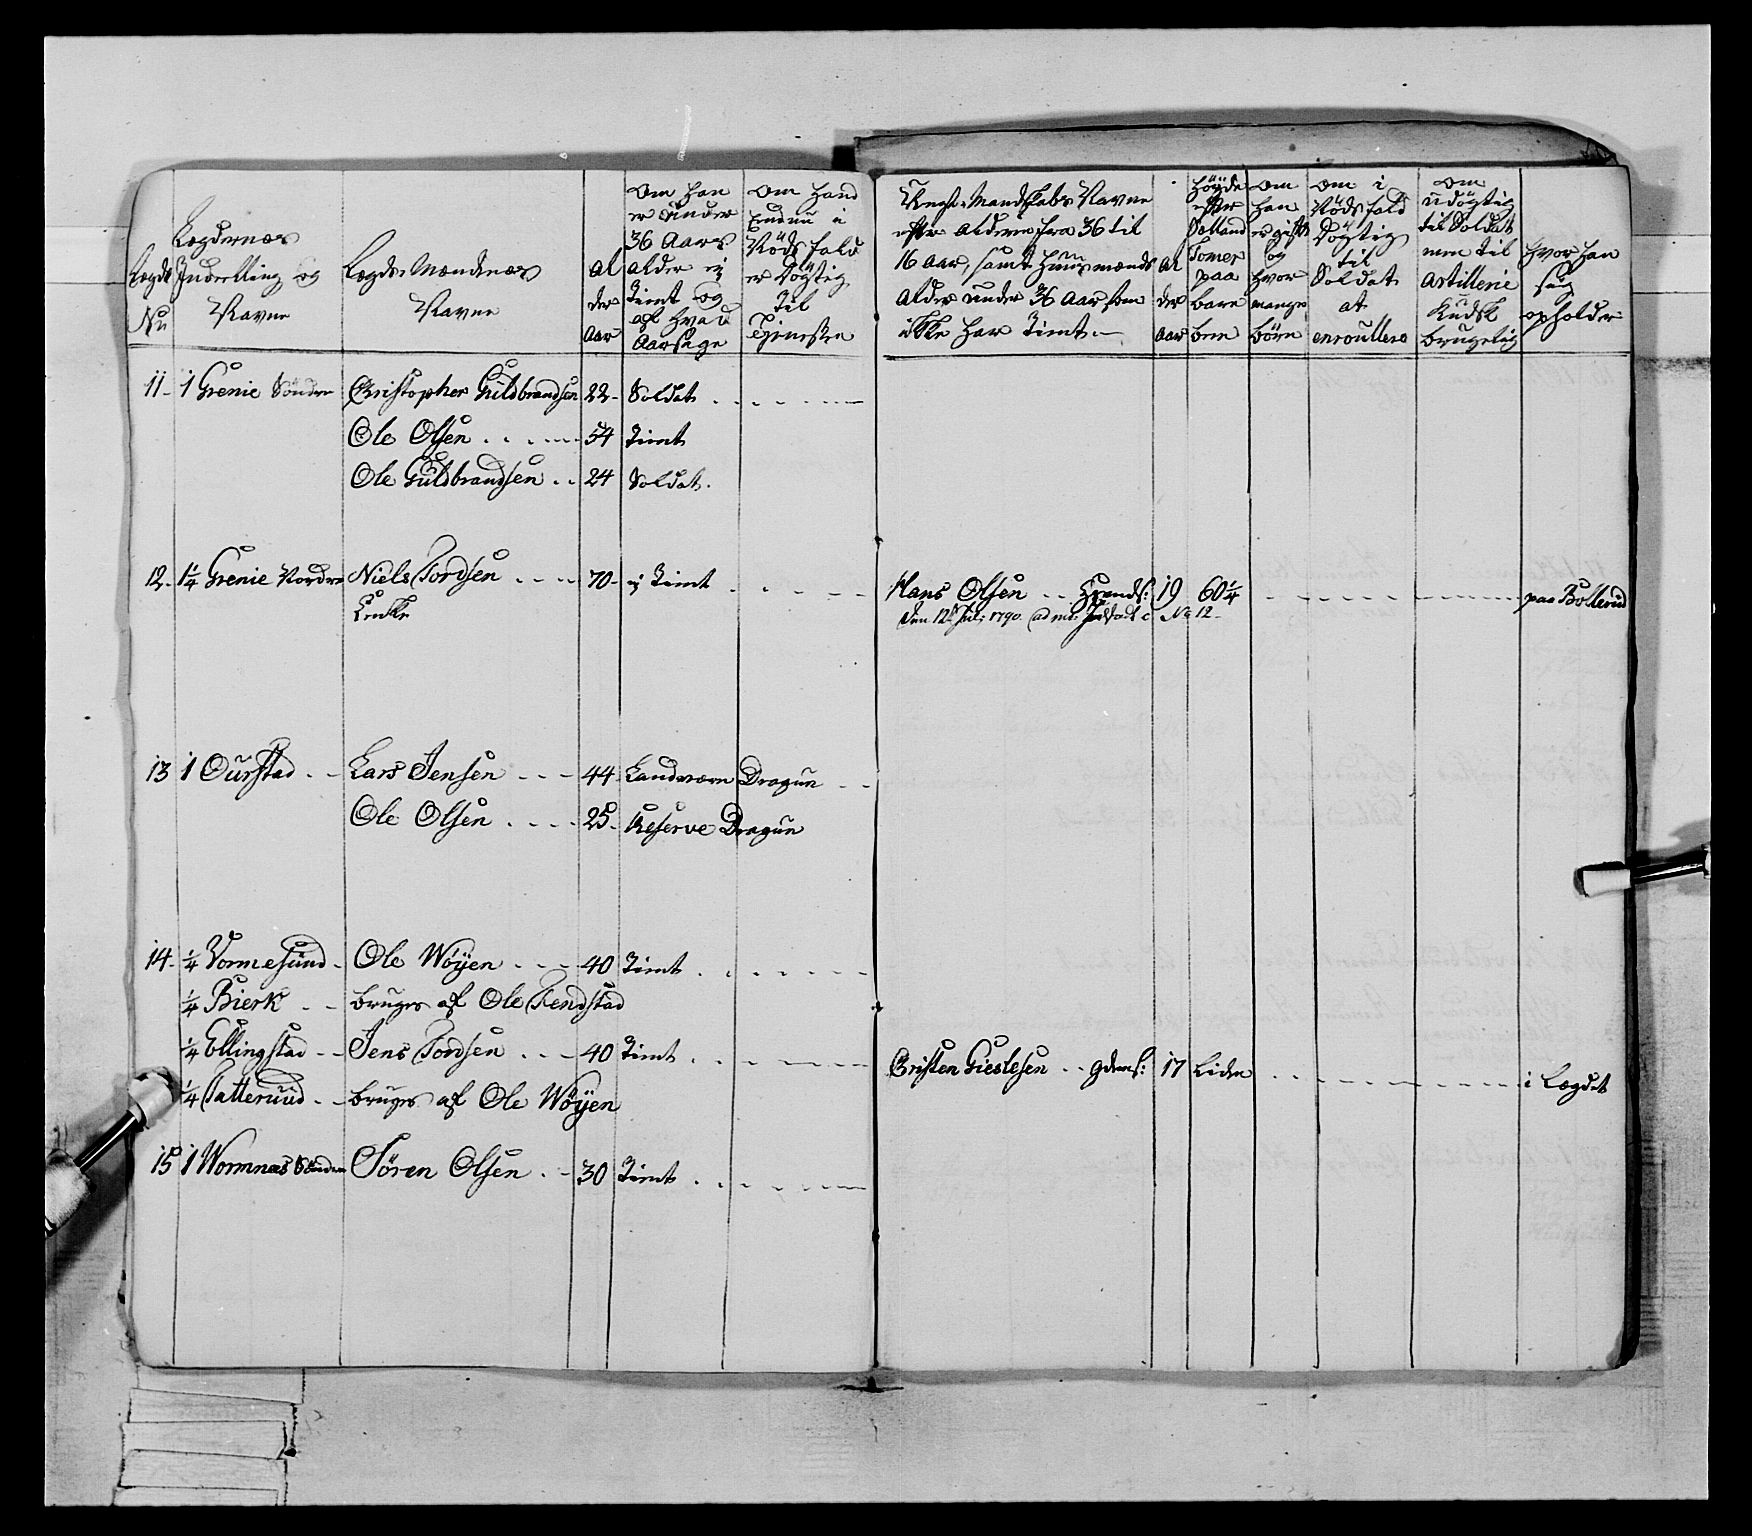 Lægdernæs
Lægds Inddelling og
No Navne
Lægds Mændenæs
Navne
Al
der
Aar
Om han
er under
36 Aars
Alder ej
tient og
af hvad
Aarsage
Om hand
Endnu i
Nöds fald
er Dögtig
til
Tjenesten
Unge Mandskabs Navne
efter Alderen fra 36 til
16 Aar, samt Huusmænds
Alder under 36 Aar som
ikke har tient
Al
der
Aar
Höyde
efter
Siælland
Tomer
paa
bare
been
Om
han
er gift
og
hvor
mange
börn
Om i
Nöds fald
Dögtig
til
Soldat
at
enroullere
Om
udögtig
til Soldat
men til
Artillerie
Kudsk
brugelig
Hvor han
sig
opholder
11- 1 Grenie Söndre Christopher Guldbrandsen 22- Soldat
Ole Olsen 54 tient
Ole Guldbrandsen 24 Soldat
12- 1¼ Grenie Nordre Niels Tordsen 70- ej tient Hans Olsen 19 60¼ paa Bollerud
Encke Den 12te Juli 1790 No 12
13 1 Ourstad Lars Jensen 44 Landværn Dragun
Ole Olsen 25 Reserve Dragun
14- ¼ Vormesund Ole Wöyen 40 tient
¼ Bierk bruges af Ole Fendstad
¼ Ellingstad Jens Tordsen 40 tient Cristen Gieslesen gdms: 17 Liden i Lægdet
¼ Tatteruud bruges af Ole Wöyen
15 1 Wormnæs Söndre Sören Olsen 30 tient